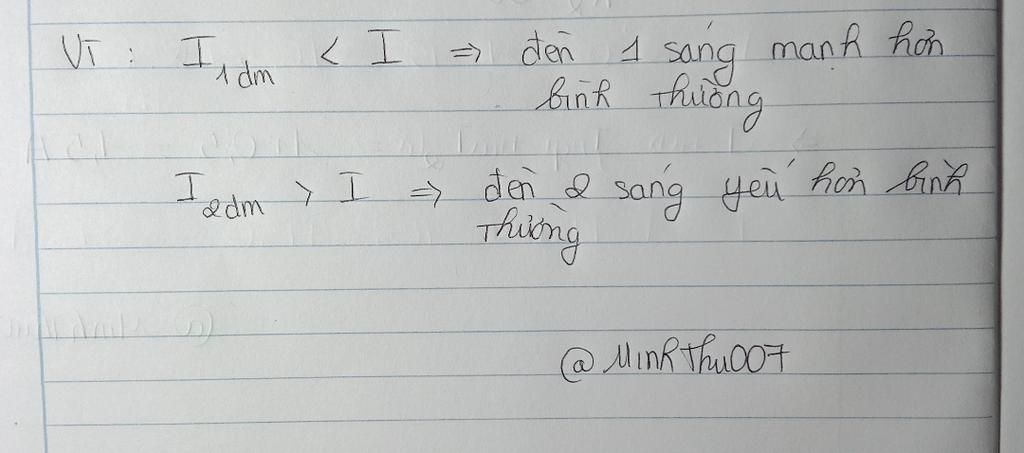 Vì : I1dm < I => đèn 1 sáng mạnh hơn
bình thường
I2dm > I => đèn 2 sáng yếu hơn bình
thường
@MinhThu007